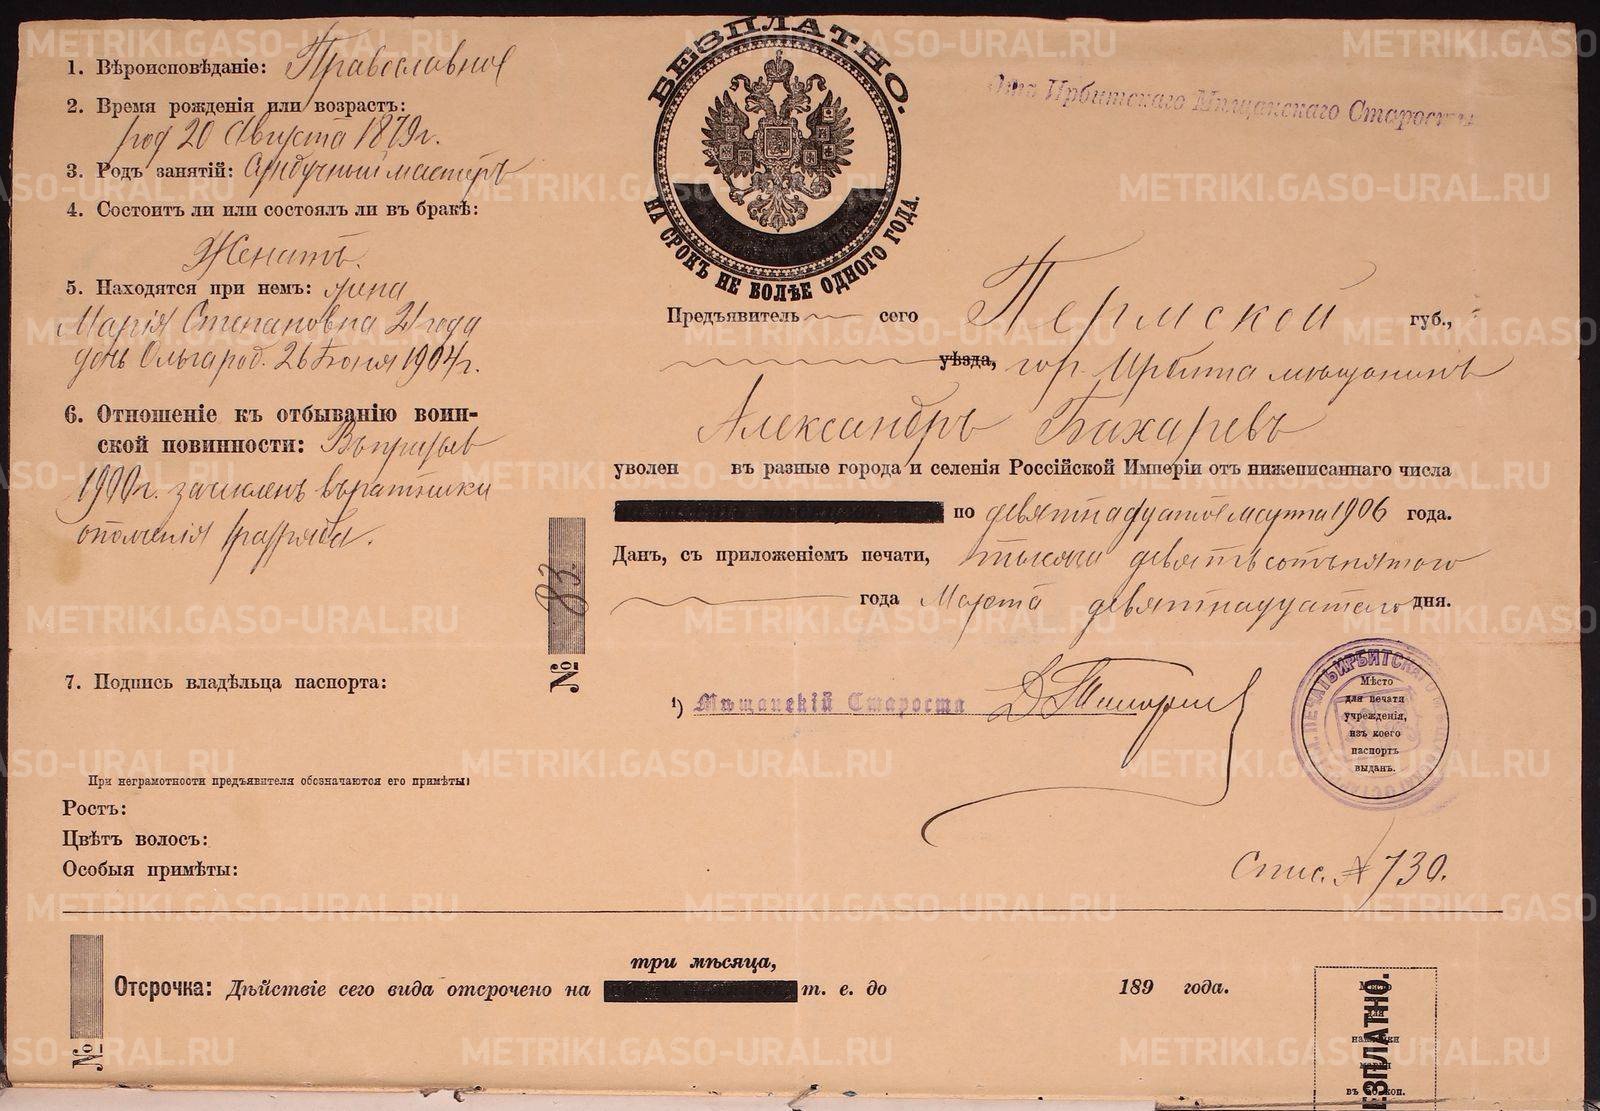 БЕЗПЛАТНО.
НА СРОКЪ НЕ БОЛѢЕ ОДНОГО ГОДА.
Отъ Ирбитскаго Мѣщанскаго Старосты
1. Вѣроисповѣданіе: Православное
2. Время рожденія или возрастъ:
род 20 Августа 1879 г.
3. Родъ занятій: Сундучный мастеръ
4. Состоитъ ли или состоялъ ли въ бракѣ:
Женатъ.
5. Находятся при немъ: жена
Марія Степановна 21 года
дочь Ольга род. 26 Іюня 1904 г.
6. Отношеніе къ отбыванію воин-
ской повинности: Въ призывъ
1900 г. зачисленъ въ ратники
ополченія разряда.
7. Подпись владѣльца паспорта:
При неграмотности предъявителя обозначаются его примѣты:
Ростъ:
Цвѣтъ волосъ:
Особыя примѣты:
№ 83.
Предъявитель сего Пермской губ.,
уѣзда, гор. Ирбита мѣщанинъ
Александръ Бахаревъ
уволен въ разные города и селенія Россійской Имперіи отъ нижеписаннаго числа
по девятнадцатое марта 1906 года.
Данъ, съ приложеніемъ печати, тысяча девятьсотъ пятого
года Марта девятнадцатаго дня.
1) Мѣщанскій Староста
ПЕЧАТЬ ИРБИТСКАГО
Мѣсто
для печати
учрежденія,
изъ коего
паспортъ
выданъ.
Спис. № 730.
три мѣсяца,
Отсрочка: Дѣйствіе сего вида отсрочено на т. е. до 189 года.
№
Мѣсто
для
наклейки
марки
въ коп.
БЕЗПЛАТНО.
METRIKI.GASO-URAL.RU